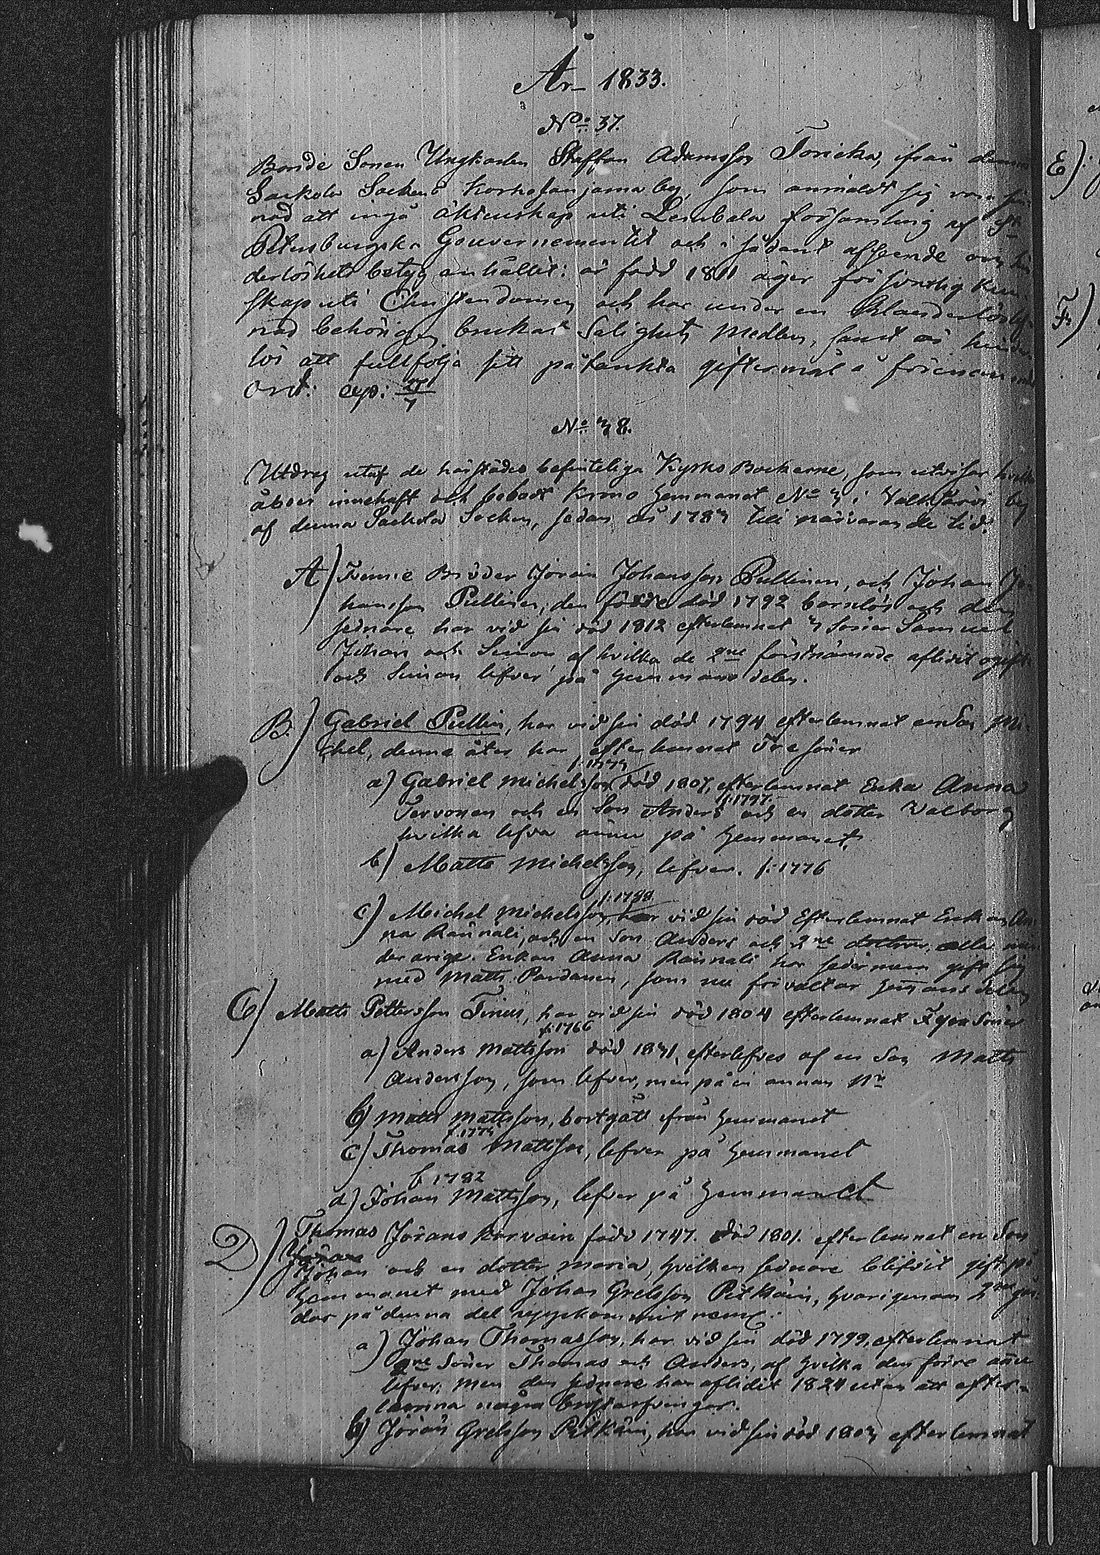 År 1833.
No: 37.
Bonde Sonen Ungkarlen Staffan Adamsson Toricka, ifrån denna
Sackola Sockens by, som anmäldt sig vara
nad att ingå äktenskap uti Lembala församling af St
Petersburgska Gouvernementet och i sådant afseende om hin
derlöshets betyg anhållit: är född 1811 äger försvarlig kun
skap uti Christendomen och har under en klanderlös
nad behörigen brukat Salighets Medlen, samt är hinder
lös att fullfölja sitt påtänkta giftermål å förenämnde
Ort: exp:
No: 38.
Utdrag utaf de härstädes befinteliga Kyrko Böckerne, som utvisar hvilka
åboer innehaft och bebodt Krono Hemmanet No 3 i by
af denna Sackola Socken, sedan år 1783 till närvarande tid.
A) Bröder Jöran Johansson Pullinen, och Johan Jo
hansson Pullinen, den förre död 1792 barnlös och den
sednare har vid sin död 1812 efterlemnat 3 Söner Samuel
Johan och Simon af hvilka de 2ne förstnämnde aflidit ogifte
och Simon lefver på Hemmans delen.
B.) Gabriel Pullin, har vid sin död 1794 efterlemnat en Son Mi-
chel, denne åter har efterlemnat Tre söner
a) Gabriel Michelsson död 1807, efterlemnat Enka Anna
Tervonen och en Son Anders f: 1797 och en dotter Valborg
hvilka lefva ännu på Hemmanet
b) Matts Michelsson, lefver. f: 1776
c) Michel Michelsson, har vid sin död Efterlemnat Enkan An
na och en Son Anders och 2ne döttrar, alla min
deråriga. Enkan Anna har sedermera gift sig
med Matts som nu förvaltar Hemmansdelen
C) Matts Pettersson har vid sin död 1804 efterlemnat Fyra Söner
f: 1766
a) Anders Mattsson död 1831, efterlefves af en Son Matts
Andersson, som lefver, men på en annan No
b) Matts Mattsson, bortgått ifrån Hemmanet
c) Thomas Mattsson, lefver på Hemmanet
f 1782
d) Johan Mattsson, lefver på Hemmanet
D) Thomas Jörans född 1747. död 1801. efterlemnat en Son
Johan och en dotter Maria, hvilken sednare blifvit gift på
Hemmanet med Johan Grelsson Pitkäin, hvarigenom 2ne
på denna del uppkommit neml:
a) Johan Thomasson, har vid sin död 1799, efterlemnat
2ne Söner Thomas och Anders, af hvilka den förre ännu
lefver, men den sednare har aflidit 1824 utan att efter-
lemna några Bröstarfvingar.
b) Jöran Grelsson Pitkäin, har vid sin död 1803 efterlemnat